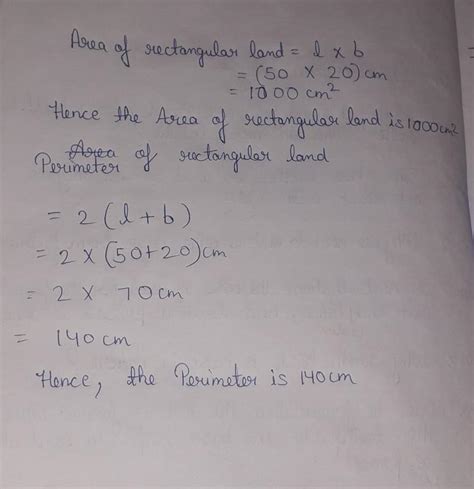 Area of rectangular land = l x b
= (50 X 20) cm
= 1000 cm²
Hence the Area of rectangular land is 1000cm²
Perimeter of rectangular land
= 2 (l + b)
= 2 x (50+20)cm
= 2 x 70cm
= 140 cm
Hence, the Perimeter is 140cm